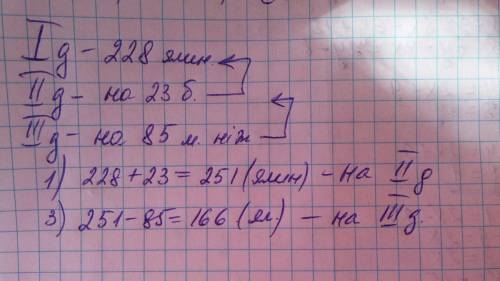 I д - 228 ялин.
II д - на 23 б.
III д - на 85 м. ніж
1) 228 + 23 = 251 (ялин) - на II д
3) 251 - 85 = 166 (ял) - на III д.